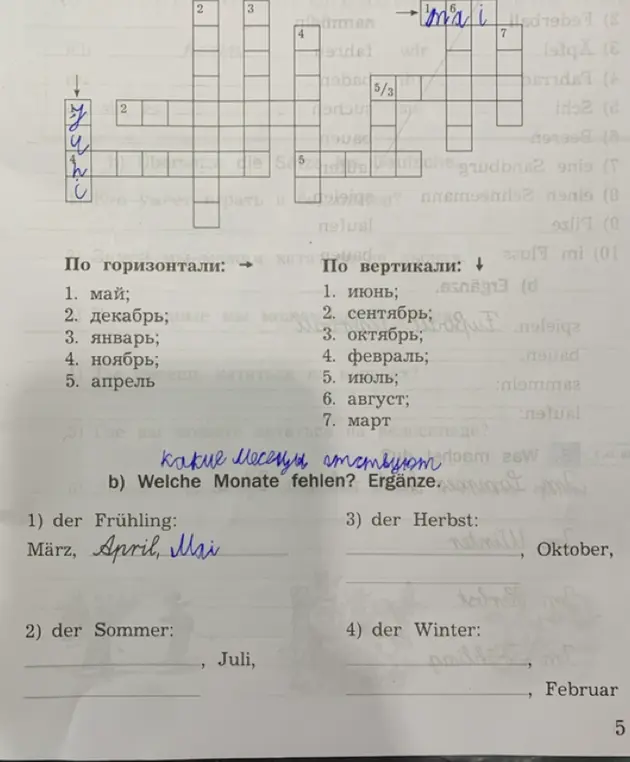 2 3 1 m 6 a i
4 7
5/3
1 J 2
u
4 n 5
i
По горизонтали: → По вертикали: ↓
1. май; 1. июнь;
2. декабрь; 2. сентябрь;
3. январь; 3. октябрь;
4. ноябрь; 4. февраль;
5. апрель 5. июль;
6. август;
7. март
какие месецы
b) Welche Monate fehlen? Ergänze.
1) der Frühling: 3) der Herbst:
März, April, Mai , Oktober,
2) der Sommer: 4) der Winter:
, Juli, ,
, Februar
5